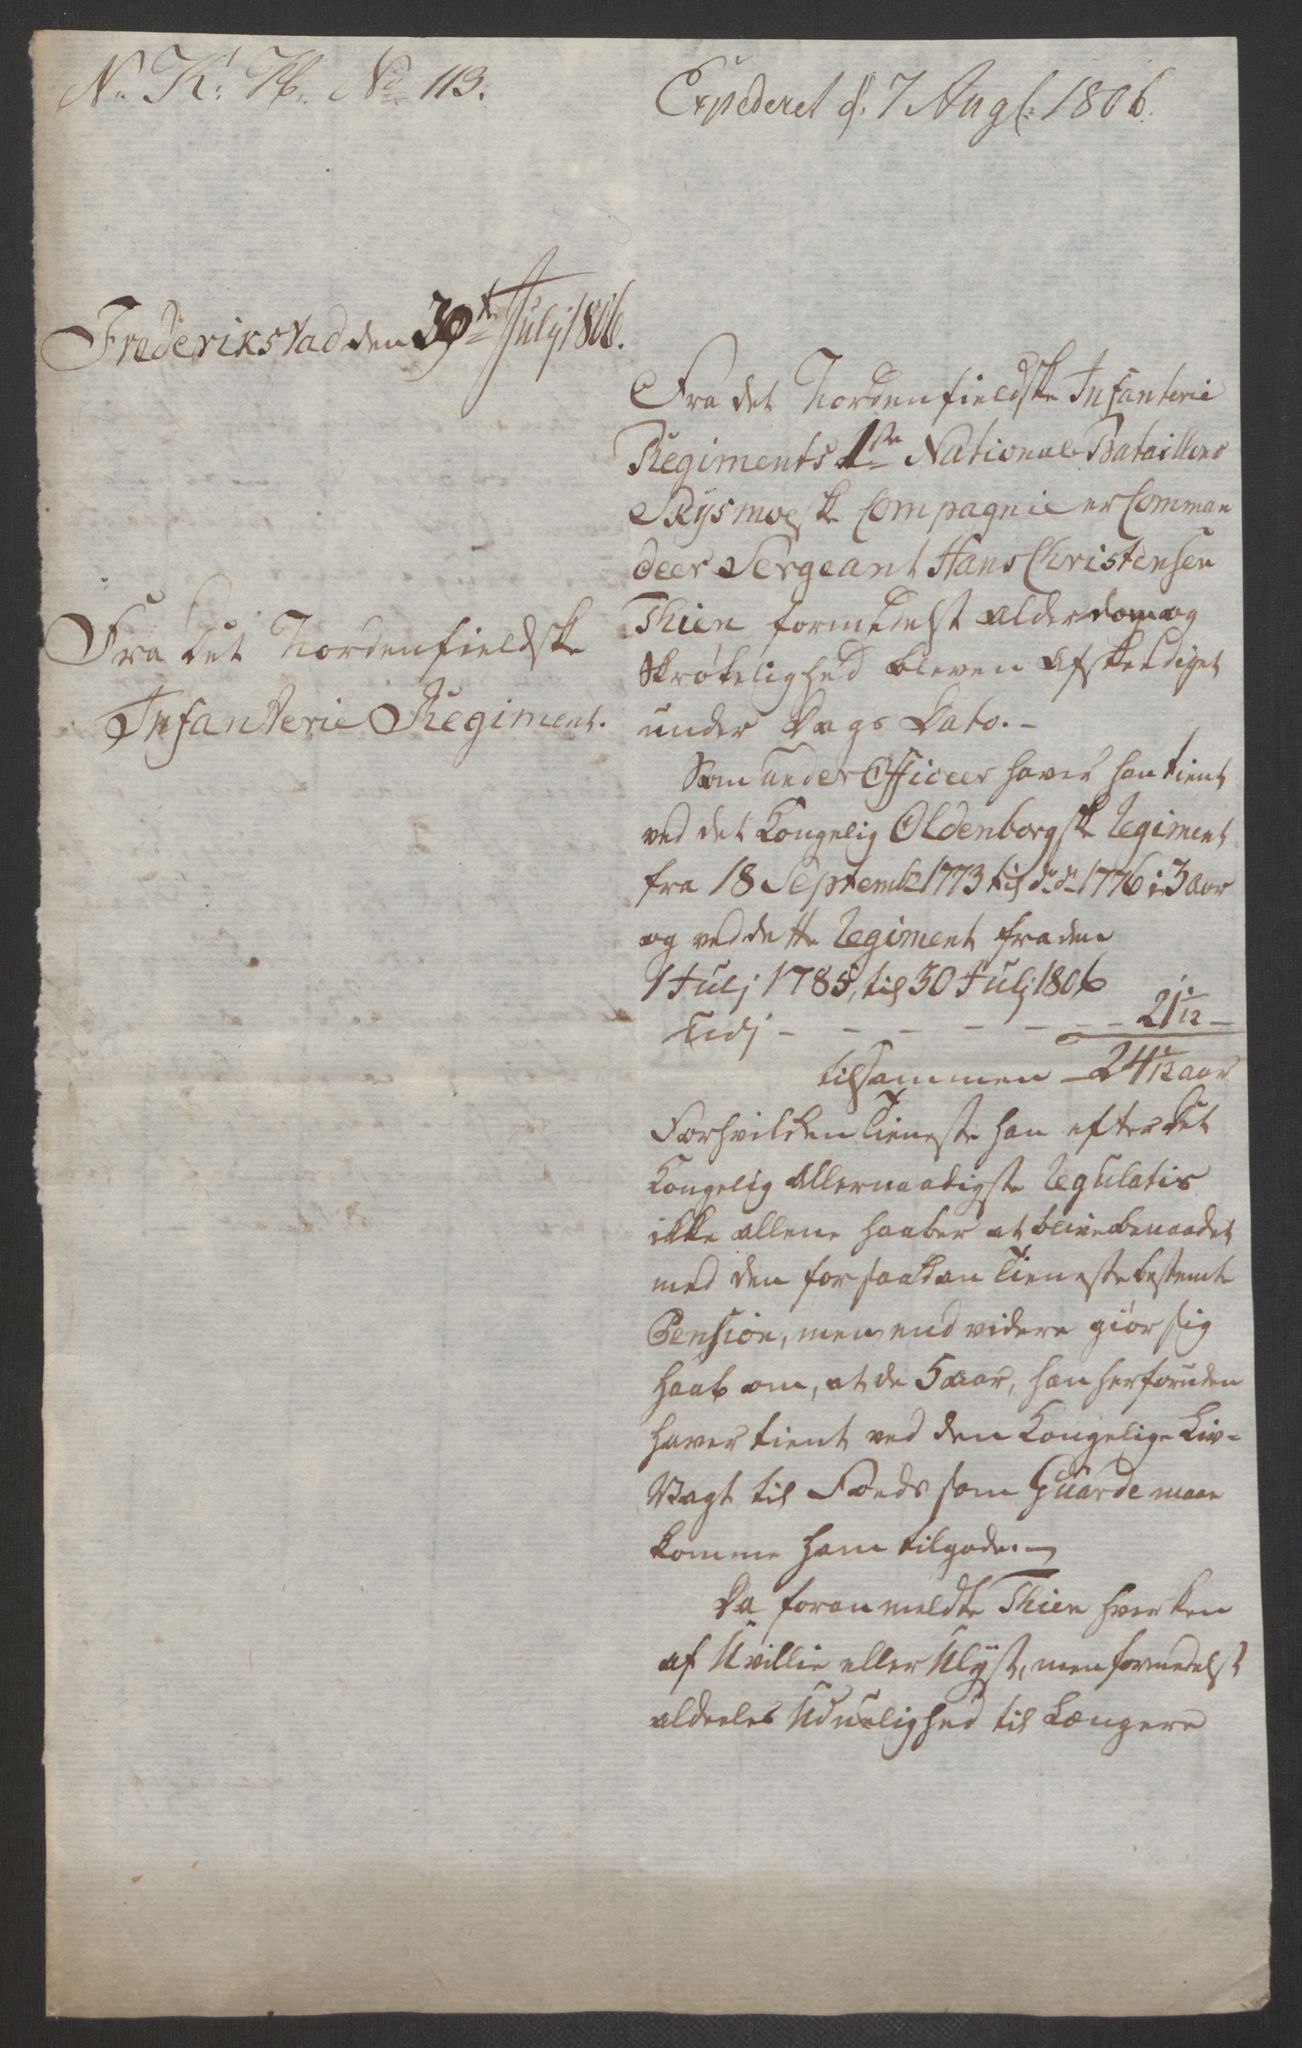 N. K. Pb. No 113.
Expederet d. 7 Augt: 1806.
Frederikstad den 30te Julij 1806.
Fra det Nordenfieldske
Infanterie Regiment.
Fra det Nordenfieldske Infanterie
Regiments 1ste National Bataillons
Rysmoeske Compagnie er Comman
deer Sergeant Hans Christensen
Thien formedelst alderdom og
Skrøbelighed bleven afskediget
under Dags Dato. -
Som under Officeer haver han tient
ved det Kongelig Oldenborgske Regiment
fra 18 Septembr 1773 til d: d: 1776 i 3 aar
og ved dette Regiment fra den
1 Julj 1785, til 30 Julj 1806
udj - - - - - - 21 1/12 -
tilsammen - 24 1/12 aar
For hvilken Tieneste han efter det
Kongelig Allernaadigste Regulativ
ikke allene haaber at blive benaadet
med den for saadan Tieneste bestemte
Pension, men end videre giør sig
Haab om, at de 5 aar, han herforuden
haver tient ved den Kongelige Liv-
Vagt til Foeds som Guarde maae
komme ham tilgode. -
Da foranmeldte Thien hverken
af Uvillie eller Ulyst, men formedelst
aldeeles Uduelighed til Længere